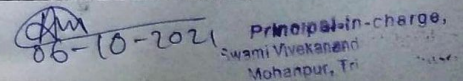 06-10-2021
Principal-in-charge,
Swami Vivekanand
Mohanpur, Tri